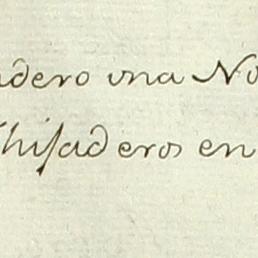 adero una No
hisaderos en